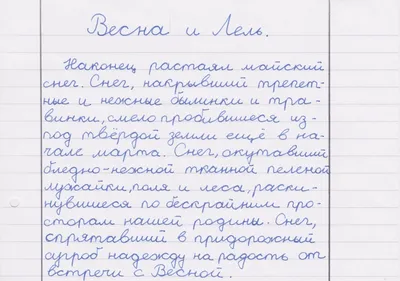 Весна и Лель.
Наконец растаял майский
снег. Снег, накрывший трепет-
ные и нежные былинки и тра-
винки, смело пробившиеся из-
под твёрдой земли ещё в на-
чале марта. Снег, окутавший
бледно-нежной тканной пеленой
лужайки, поля и леса, раски-
нувшиеся по бескрайним про-
сторам нашей родины. Снег,
спрятавший в придорожный
сугроб надежду на радость от
встречи с Весной.